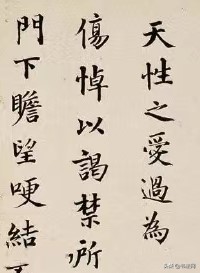 天性之愛過為
傷悼以謁禁所
門下瞻望哽結